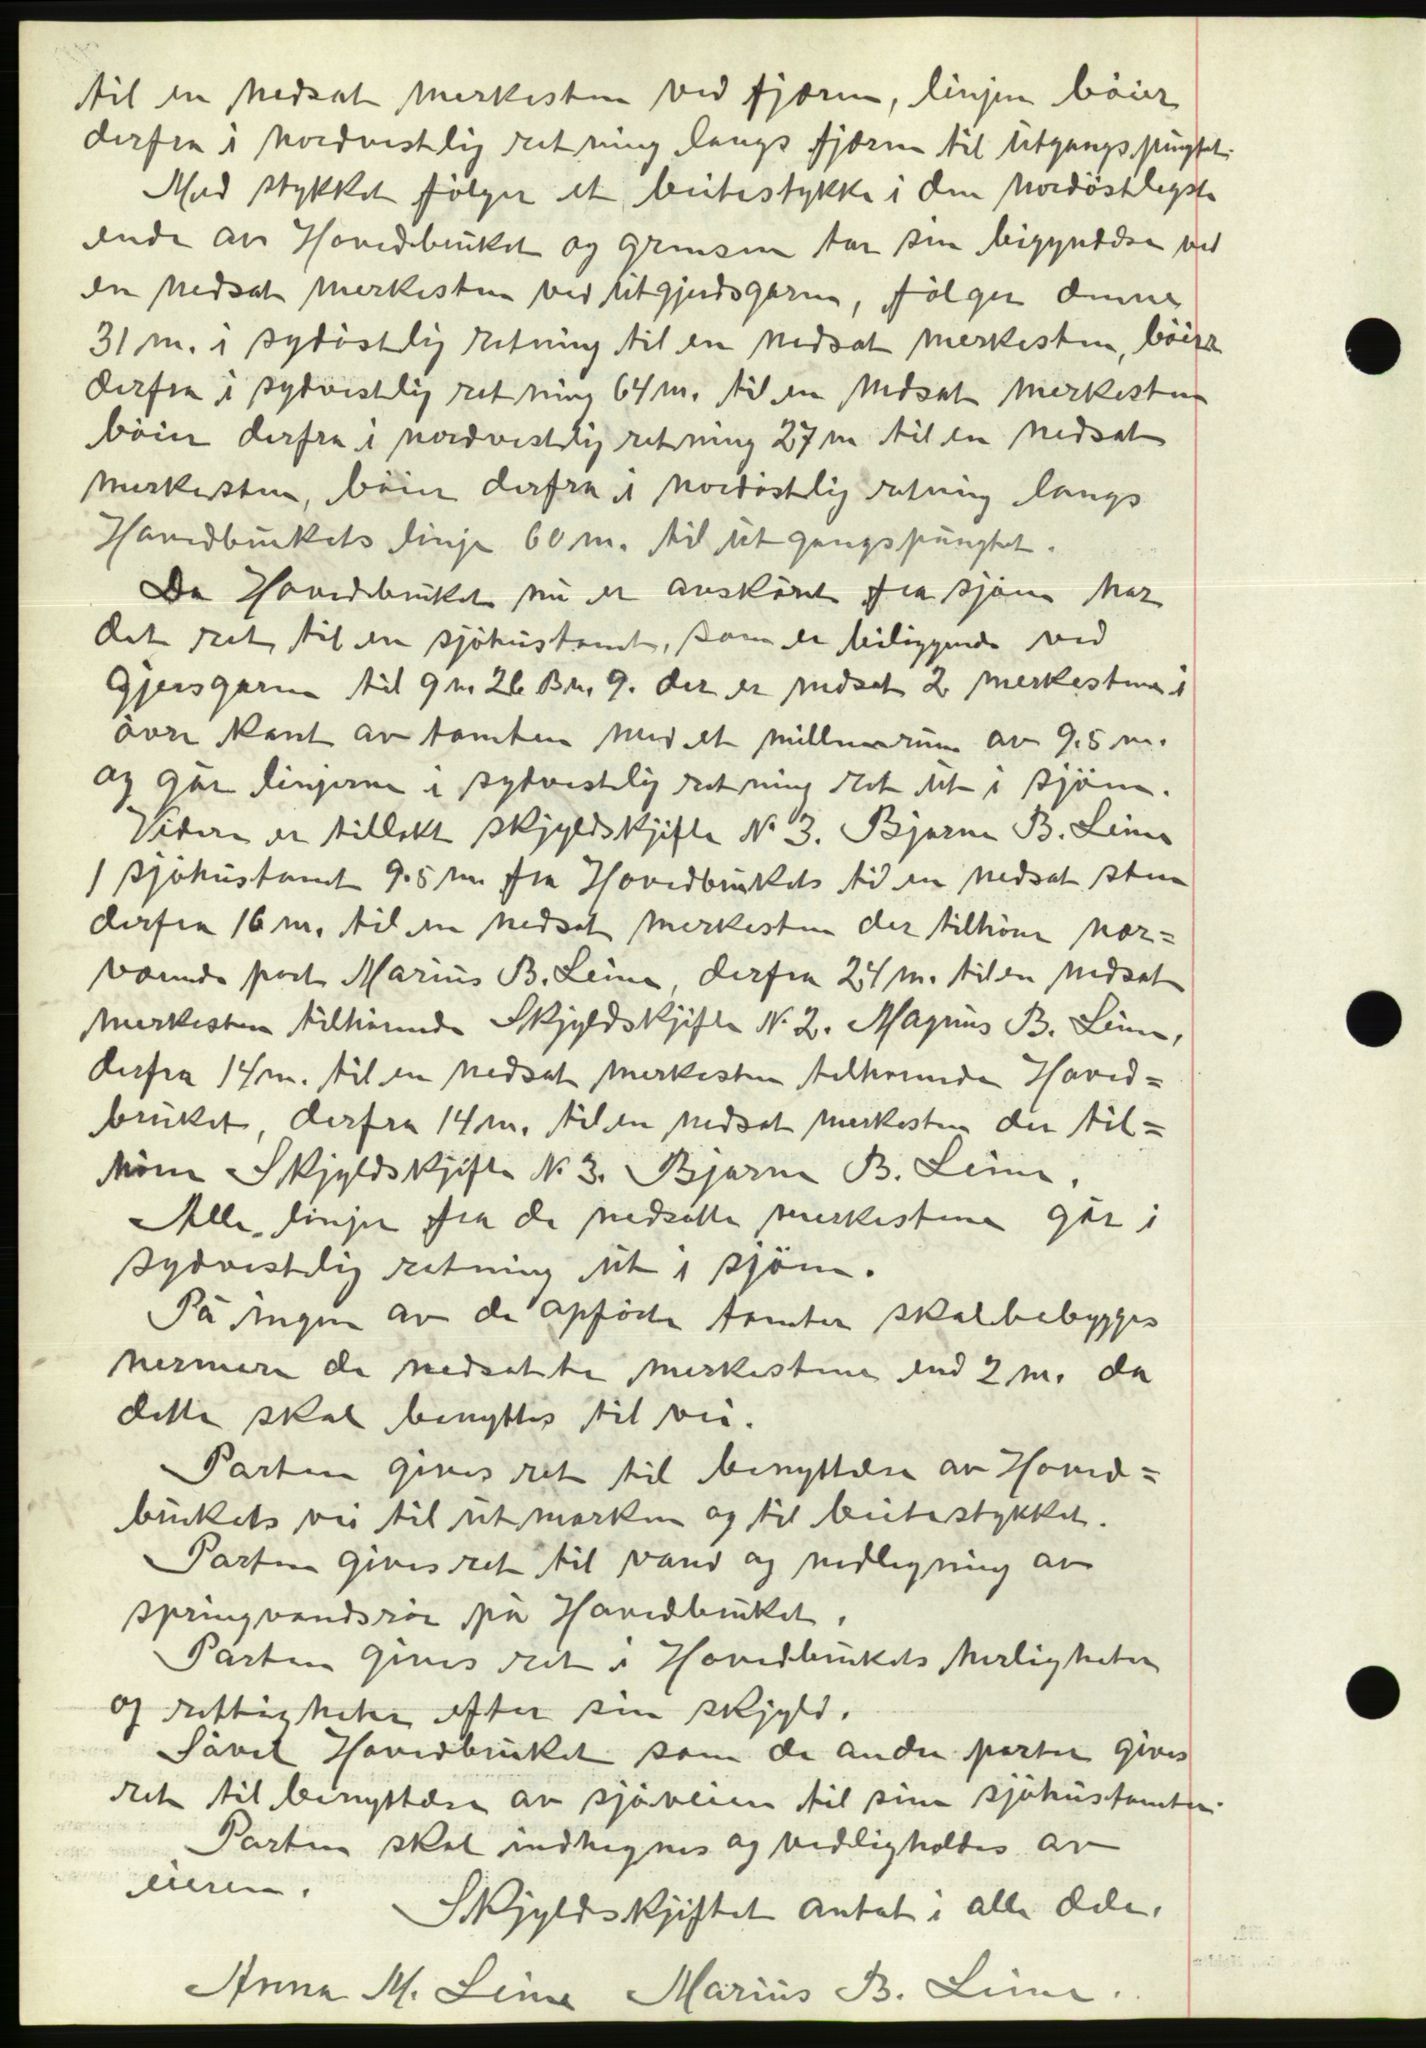 til en nedsat merkesten ved fjæren, linjen böier
derfra i nordvestlig retning langs fjæren til utgangspungtet.
Med stykket fölger et beitestykke i den nordöstligste
ende av Hovedbruket og grensen tar sin begynnelse ved
en nedsat merkesten ved utgjerdsgaren, fölger denne
31 m. i sydöstlig retning til en nedsat merkesten, böier
derfra i sydvestlig retning 64 m. til en nedsat merkesten
böier derfra i nordvestlig retning 27 m til en nedsat
merkesten, böier derfra i nordöstlig retning langs
Hovedbrukets linje 60 m. til utgangspungtet.
Da Hovedbruket nu er avskåret fra sjöen har
det ret til en sjöhustomt, som er beliggende ved
gjersgaren til gn. 26 Bn. 9. der er nedsat 2 merkestener i
övre kant av tomten med et mellemrum av 9.5 m.
og går linjerne i sydvestlig retning ret ut i sjöen.
Videre er tillekt skjyldskjifte No 3. Bjarne B. Leine
1 sjöhustomt 9.5 m. fra Hovedbrukets til en nedsat sten
derfra 16 m. til en nedsat merkesten der tilhörer nær=
værende part Marius B. Leine, derfra 24 m. til en nedsat
merkesten tilhörende Skjyldskjifte No 2. Magnus B. Leine,
derfra 14 m. til en nedsat merkesten tilhörende Hoved=
bruket, derfra 14 m. til en nedsat merkesten der til=
hörer Skjyldskjifte No 3. Bjarne B. Leine.
Alle linjer fra de nedsatte merkestene går i
sydvestlig retning ut i sjöen.
På ingen av de opförte tomter skal bebygges
nermere de nedsatte merkestene end 2 m. da
dette skal benyttes til vei.
Parten gives ret til benyttelse av Hoved=
brukets vei til utmarken og til beitestykket.
Parten gives ret til vand og nedlegning av
springvandsrör på Hovedbruket.
Parten gives ret i Hovedbrukets herligheter
og rettigheter efter sin skjyld.
Såvel Hovedbruket som de andre parter gives
ret til benyttelse av sjöveien til sine sjöhustomter.
Parten skal indhegnes og vedligholdes av
eieren.
Skjyldskjiftet antat i alle dele.
Anna M. Leine Marius B. Leine.